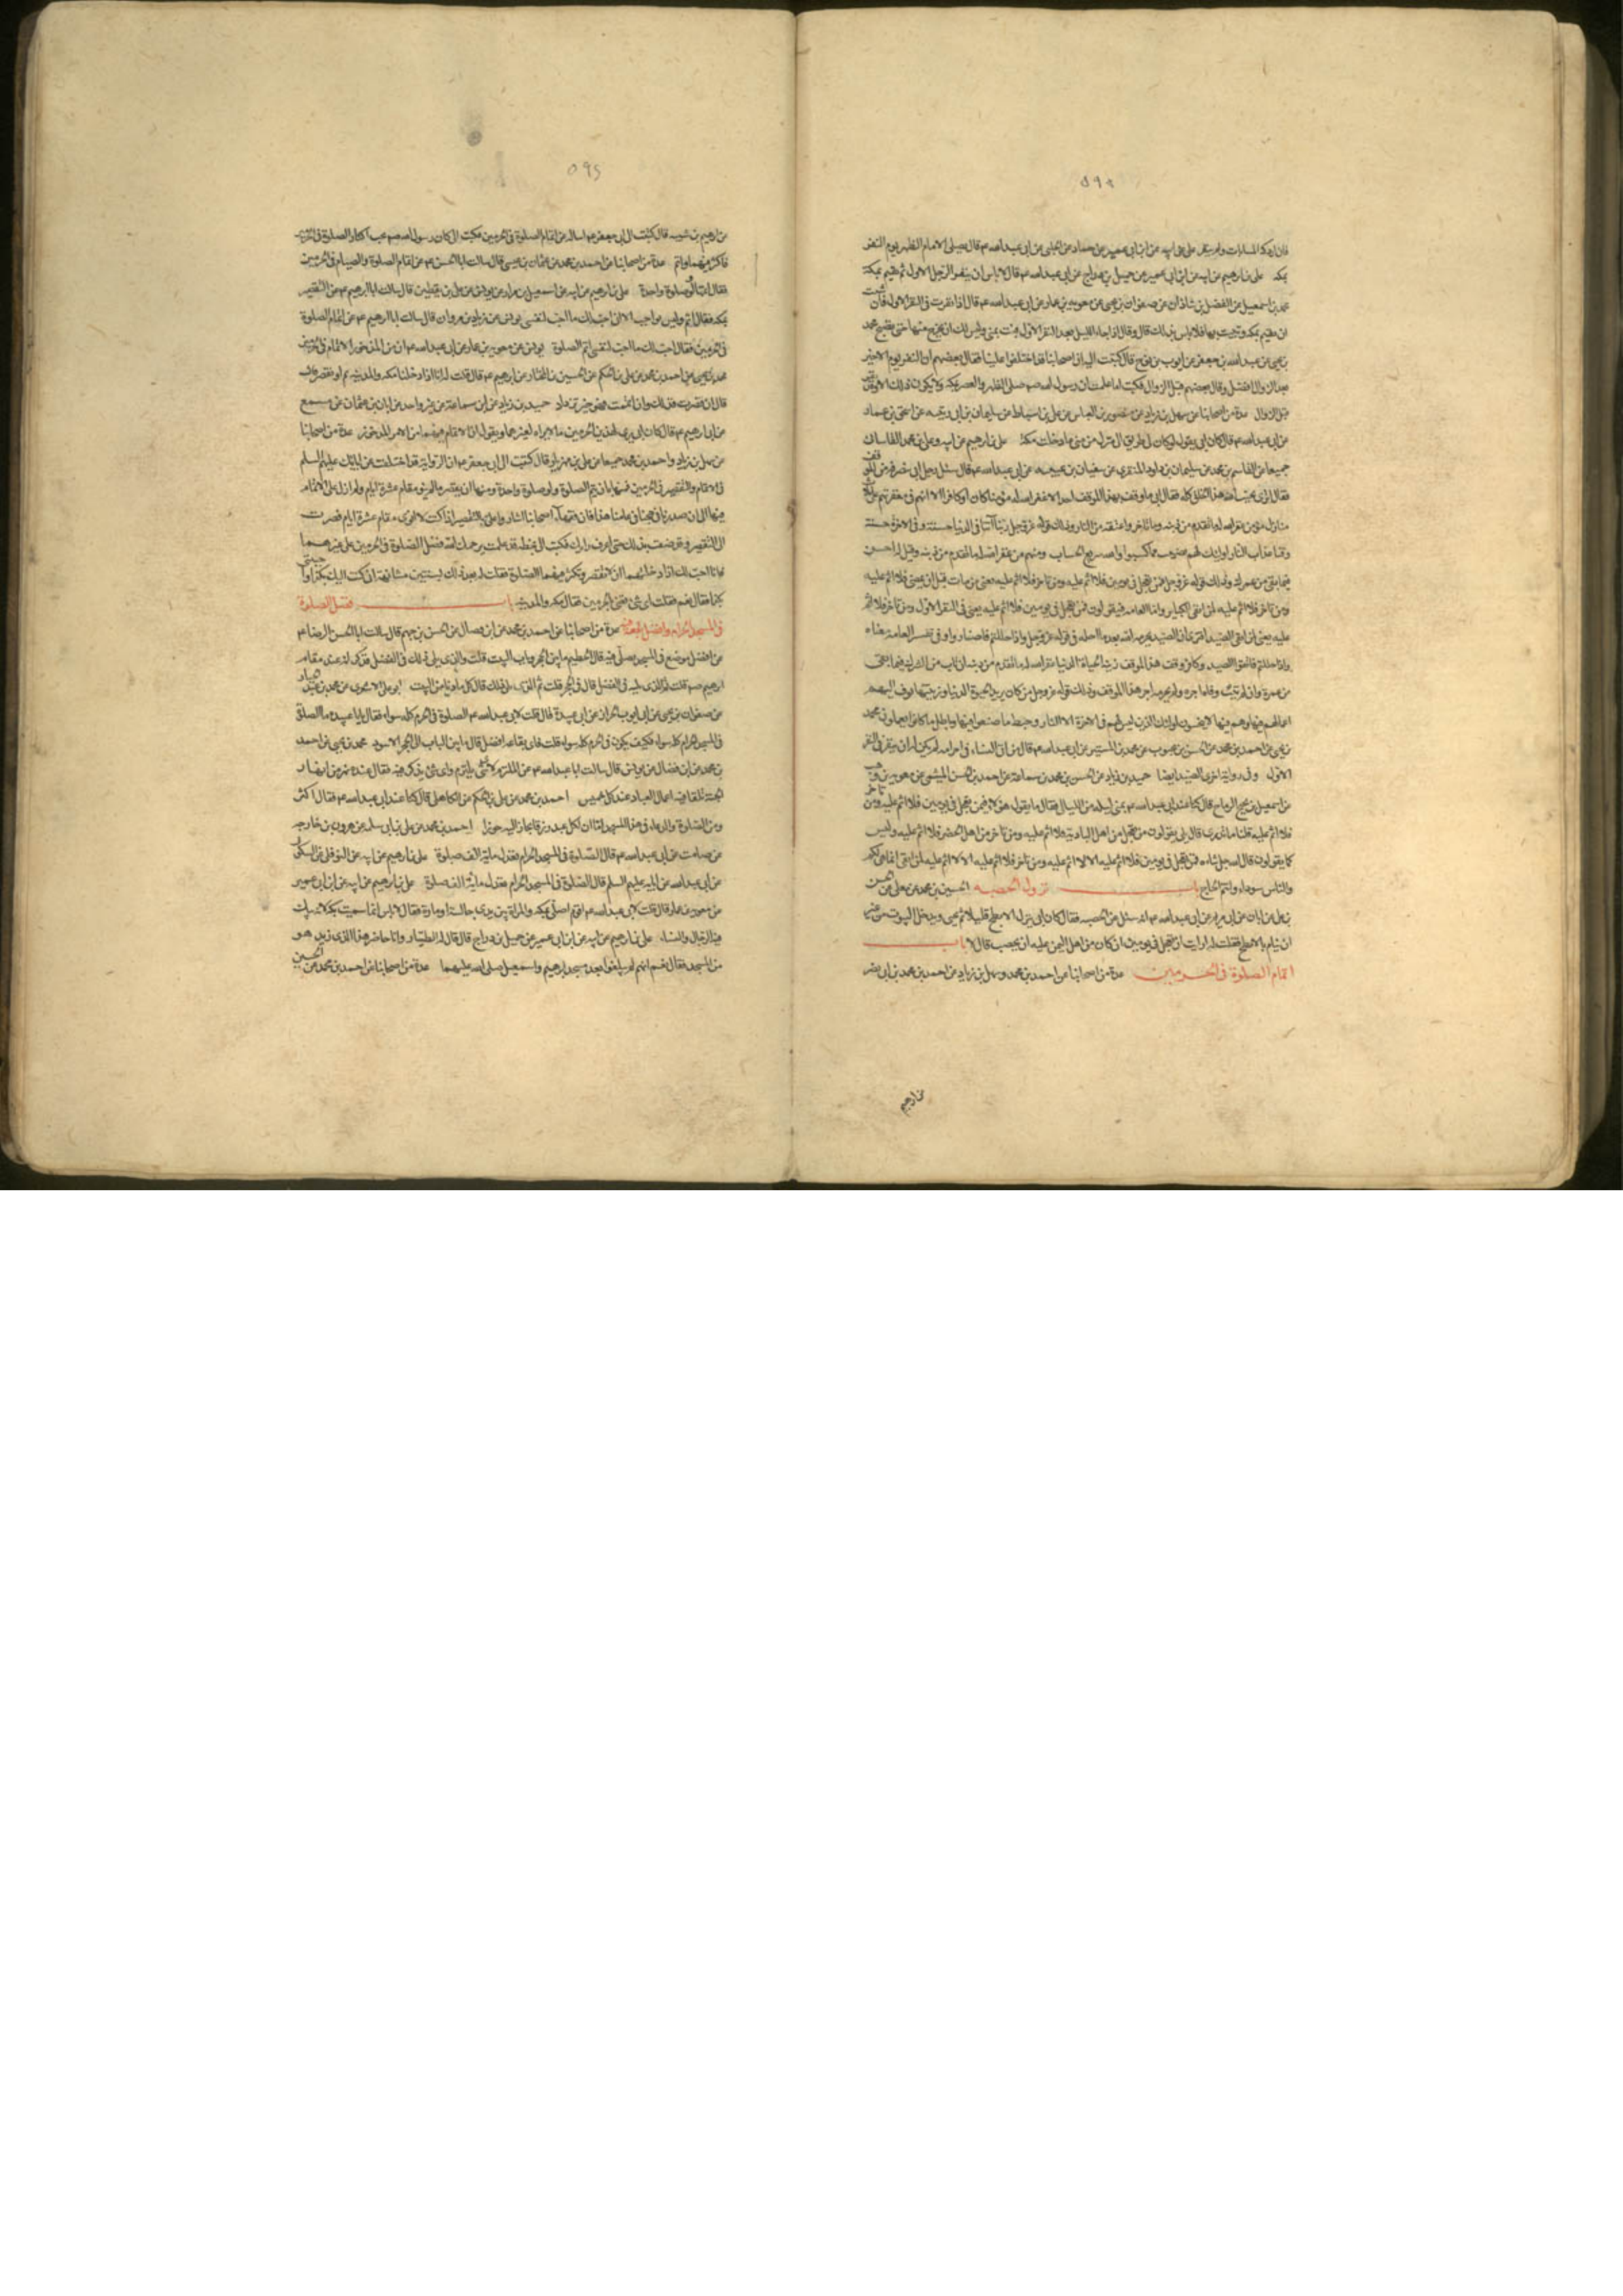 ٥٩١
علي بن ابرهيم عن ابيه عن ابن ابي عمير عن حماد عن الحلبي عن ابي عبدالله ع قال يصلي الامام الظهر يوم النفر
بمكة علي بن ابرهيم عن ابيه عن ابن ابي عمير عن جميل بن دراج عن ابي عبدالله ع قال لا باس ان ينفر الرجل الاول ثم يقيم بمكة
محمد بن اسمعيل عن الفضل بن شاذان عن صفوان بن يحيى عن معوية بن عمار عن ابي عبدالله ع قال اذا نفرت في النفر الاول فان شئت
ان تقيم بمكة وتبيت بها فلا باس بذلك قال وقال اذا جاء الليل بعد النفر الاول فبت بمنى وليس لك ان تخرج منها حتى تصبح محمد
بن يحيى عن عبدالله بن جعفر عن ايوب بن نوح قال كتبت اليه ان اصحابنا قد اختلفوا علينا فقال بعضهم ان النفر يوم الاخير
بعد الزوال افضل وقال بعضهم قبل الزوال فكتب اما علمت ان رسول الله ص صلى الظهر والعصر بمكة ولا يكون ذلك الا وقد نفر
قبل الزوال عدة من اصحابنا عن سهل بن زياد عن منصور بن العباس عن علي بن اسباط عن سليمان بن ابي زينبه عن اسحق بن عمار
عن ابي عبدالله ع قال كان ابي يقول لو كان لي طريق الى منزلي من منى ما دخلت مكة علي بن ابرهيم عن ابيه وعلي بن محمد القاساني
جميعا عن القاسم بن محمد عن سليمان بن داود المنقري عن سفيان بن عيينه عن ابي عبدالله ع قال سئل رجل ابي
منازل مؤمن غفر الله له ما تقدم من ذنبه وما تاخر واعتقه من النار وذلك قوله عز وجل ربنا آتنا في الدنيا حسنة وفي الاخرة حسنة
وقنا عذاب النار اولئك لهم نصيب مما كسبوا والله سريع الحساب ومنهم من غفر الله له ما تقدم من ذنبه وقيل له احسن
فيما بقي من عمرك وذلك قوله عز وجل فمن تعجل في يومين فلا اثم عليه ومن تاخر فلا اثم عليه يعني من مات قبل ان يمضي فلا اثم عليه
ومن تاخر فلا اثم عليه لمن اتقى الكباير واما العامه فيقولون فمن تعجل في يومين فلا اثم عليه يعني في النفر الاول ومن تاخر فلا اثم
واذا حللتم فاتقوا الصيد وكافر وقف هذا الموقف زينة الحياة الدنيا غفر الله له ما تقدم من ذنبه ان تاب من الشرك فيما بقي
اعمالهم فيها وهم فيها لا يبخسون اولئك الذين ليس لهم في الاخرة الا النار وحبط ما صنعوا فيها وباطل ما كانوا يعملون محمد
بن يحيى عن احمد بن محمد عن الحسن بن محبوب عن محمد بن المستنير عن ابي عبدالله ع قال من اتى النساء في احرامه لم يكن له ان ينفر في النفر
الاول وفي رواية اخرى الصيد ايضا حميد بن زياد عن الحسن بن محمد بن سماعة عن احمد بن الحسن الميثمي عن معوية بن وهب
عن اسمعيل بن نجيح الرماح قال كنا عند ابي عبدالله ع بمنى ليلة من الليالي فقال ما يقول هؤلاء فيمن تعجل في يومين فلا اثم عليه ومن تاخر
فلا اثم عليه قلنا ما ندري قال بلى يقولون من تعجل من اهل البادية فلا اثم عليه ومن تاخر من اهل الحضر فلا اثم عليه وليس
كما يقولون قال الله جل ثناءه فمن تعجل في يومين فلا اثم عليه الا لا اثم عليه ومن تاخر فلا اثم عليه الا لا اثم عليه لمن اتقى انما هي لكم
والناس سواد وانتم الحاج باب نزول الحصبه الحسين بن محمد عن معلى عن الحسن
بن علي عن ابان عن ابي مريم عن ابي عبدالله ع انه سئل عن الحصبه فقال كان ابي ينزل الابطح قليلا ثم يجي ويدخل البيوت من غير
ان ينام بالابطح فقلت له ارايت ان تعجل في يومين ان كان من اهل اليمن عليه ان يحصب قال لا باب
اتمام الصلوة في الحرمين عدة من اصحابنا عن احمد بن محمد وسهل بن زياد عن احمد بن محمد بن ابي نصر
عن ابرهيم
٥٩٢
عن ابرهيم بن شيبه قال كتبت الى ابي جعفر ع اساله عن اتمام الصلوة في الحرمين فكتب الي كان رسول الله ص يحب اكثار الصلوة في الحرمين
فاكثر فيهما واتم عدة من اصحابنا عن احمد بن محمد عن عثمان بن عيسى قال سالت ابا الحسن ع عن اتمام الصلوة والصيام في الحرمين
فقال اتمها ولو صلوة واحدة علي بن ابرهيم عن ابيه عن اسمعيل بن مرار عن يونس عن علي بن يقطين قال سالت ابا ابرهيم ع عن التقصير
بمكه فقال اتم وليس بواجب الا اني احب لك ما احب لنفسي يونس عن زياد بن مروان قال سالت ابا ابرهيم ع عن اتمام الصلوة
في الحرمين فقال احب لك ما احب لنفسي اتم الصلوة يونس عن معوية بن عمار عن ابي عبدالله ع ان من المذخور الاتمام في الحرمين
محمد بن يحيى عن احمد بن محمد عن علي بن الحكم عن الحسين بن المختار عن ابي ابرهيم ع قال قلت له انا اذا دخلنا مكه والمدينه نتم او نقصر
قال ان قصرت فذلك وان اتممت فهو خير تزداد حميد بن زياد عن ابن سماعة عن غير واحد عن ابان بن عثمان عن مسمع
عن ابي ابرهيم ع قال كان ابي يرى لهذين الحرمين ما لا يراه لغيرهما ويقول ان الاتمام فيهما من الامر المذخور عدة من اصحابنا
عن سهل بن زياد واحمد بن محمد جميعا عن علي بن مهزيار قال كتبت الى ابي جعفر ع ان الرواية قد اختلفت عن ابائك عليهم السلم
في الاتمام والتقصير في الحرمين فمنها بان يتم الصلوة ولو صلوة واحدة ومنها ان يقصر ما لم ينو مقام عشرة ايام ولم ازل على الاتمام
فيها الى ان صدرنا في حجنا في عامنا هذا فان فقهاء اصحابنا اشاروا علي بالتقصير اذا كنت لا انوي مقام عشرة ايام فصرت
الى التقصير وقد ضقت بذلك حتى اعرف رايك فكتب الي بخطه قد علمت يرحمك الله فضل الصلوة في الحرمين على غيرهما
فانا احب لك اذا دخلتهما ان لا تقصر وتكثر فيهما الصلوة فقلت له بعد ذلك بسنتين مشافهة اني كتبت اليك بكذا واجبتني
بكذا فقال نعم فقلت اي شئ تعني بالحرمين فقال مكه والمدينه باب فضل الصلوة
في المسجد الحرام وافضل بقعة فيه عدة من اصحابنا عن احمد بن محمد عن ابن فضال عن الحسن بن جهم قال سالت ابا الحسن الرضا ع
عن افضل موضع في المسجد يصلى فيه قال الحطيم ما بين الحجر وباب البيت قلت والذي يلي ذلك في الفضل فذكر انه عند مقام
ابرهيم ص قلت ثم الذي يليه في الفضل قال في الحجر قلت ثم الذي يلي ذلك قال كل ما دنا من البيت ابو علي الاشعري عن محمد بن عبد الجبار
عن صفوان بن يحيى عن ابي ايوب الخراز عن ابي عبيدة قال قلت لابي عبدالله ع الصلوة في الحرم كله سواء فقال يا با عبيده ما الصلوة
في المسجد الحرام كله سواء فكيف يكون في الحرم كله سواء قلت فاي بقاعه افضل قال ما بين الباب الى الحجر الاسود محمد بن يحيى عن احمد
بن محمد عن ابن فضال عن يونس قال سالت ابا عبدالله ع عن الملتزم لاي شئ يلتزم واي شئ يذكر فيه فقال عنده نهر من انهار
الجنة تلقا فيه اعمال العباد عند كل خميس احمد بن محمد عن علي بن الحكم عن الكاهلي قال كنا عند ابي عبدالله ع فقال اكثروا
من الصلوة والدعاء في هذا المسجد اما ان لكل عبد رزقا يجاز اليه حوزا احمد بن محمد عن علي بن ابي سلمه عن هرون بن خارجه
عن صامت عن ابي عبدالله ع قال الصلوة في المسجد الحرام تعدل مائة الف صلوة علي بن ابرهيم عن ابيه عن النوفلي عن السكوني
عن ابي عبدالله عن ابائه عليهم السلم قال الصلوة في المسجد الحرام تعدل مائة الف صلوة علي بن ابرهيم عن ابيه عن ابن ابي عمير
عن معوية بن عمار قال قلت لابي عبدالله ع اقوم اصلي بمكه والمراة بين يدي جالسة او مارة فقال لا باس انما سميت بكه لانه يبك
فيها الرجال والنساء علي بن ابرهيم عن ابيه عن ابن ابي عمير عن جميل بن دراج قال قال له الطيار وانا حاضر هذا الذي زيد هو
من المسجد فقال نعم انهم لم يبلغوا بعد مسجد ابرهيم واسمعيل صلى الله عليهما عدة من اصحابنا عن احمد بن محمد عن الحسين